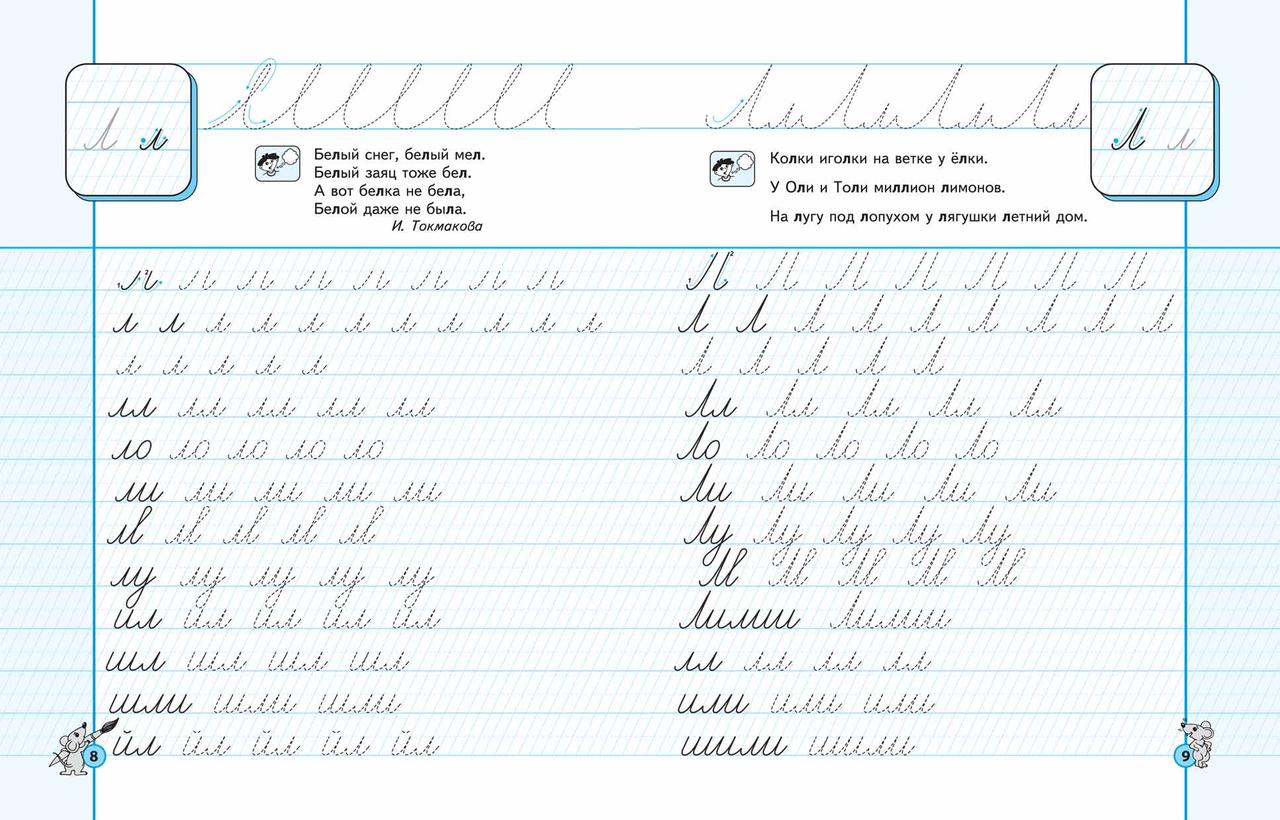 Л л
Белый снег, белый мел.
Белый заяц тоже бел.
А вот белка не бела,
Белой даже не была.
И. Токмакова
л л л л л л л л
л л л л л л л л л л л
л л л л л
лл лл лл лл лл
ло ло ло ло ло
ли ли ли ли ли
лв лв лв лв лв
лу лу лу лу лу
ил ил ил ил ил
шл шл шл шл
шли шли шли
йл йл йл йл йл
8
Лилилили
Л л
Колки иголки на ветке у ёлки.
У Оли и Толи миллион лимонов.
На лугу под лопухом у лягушки летний дом.
Л Л Л Л Л Л Л Л
Л Л Л Л Л Л Л Л Л
Л Л Л Л Л
Лл Лл Лл Лл Лл
Ло Ло Ло Ло Ло
Ли Ли Ли Ли Ли
Лу Лу Лу Лу Лу
Лв Лв Лв Лв Лв
Лилии Лилии
лл лл лл лл
или или или
шили шили
9